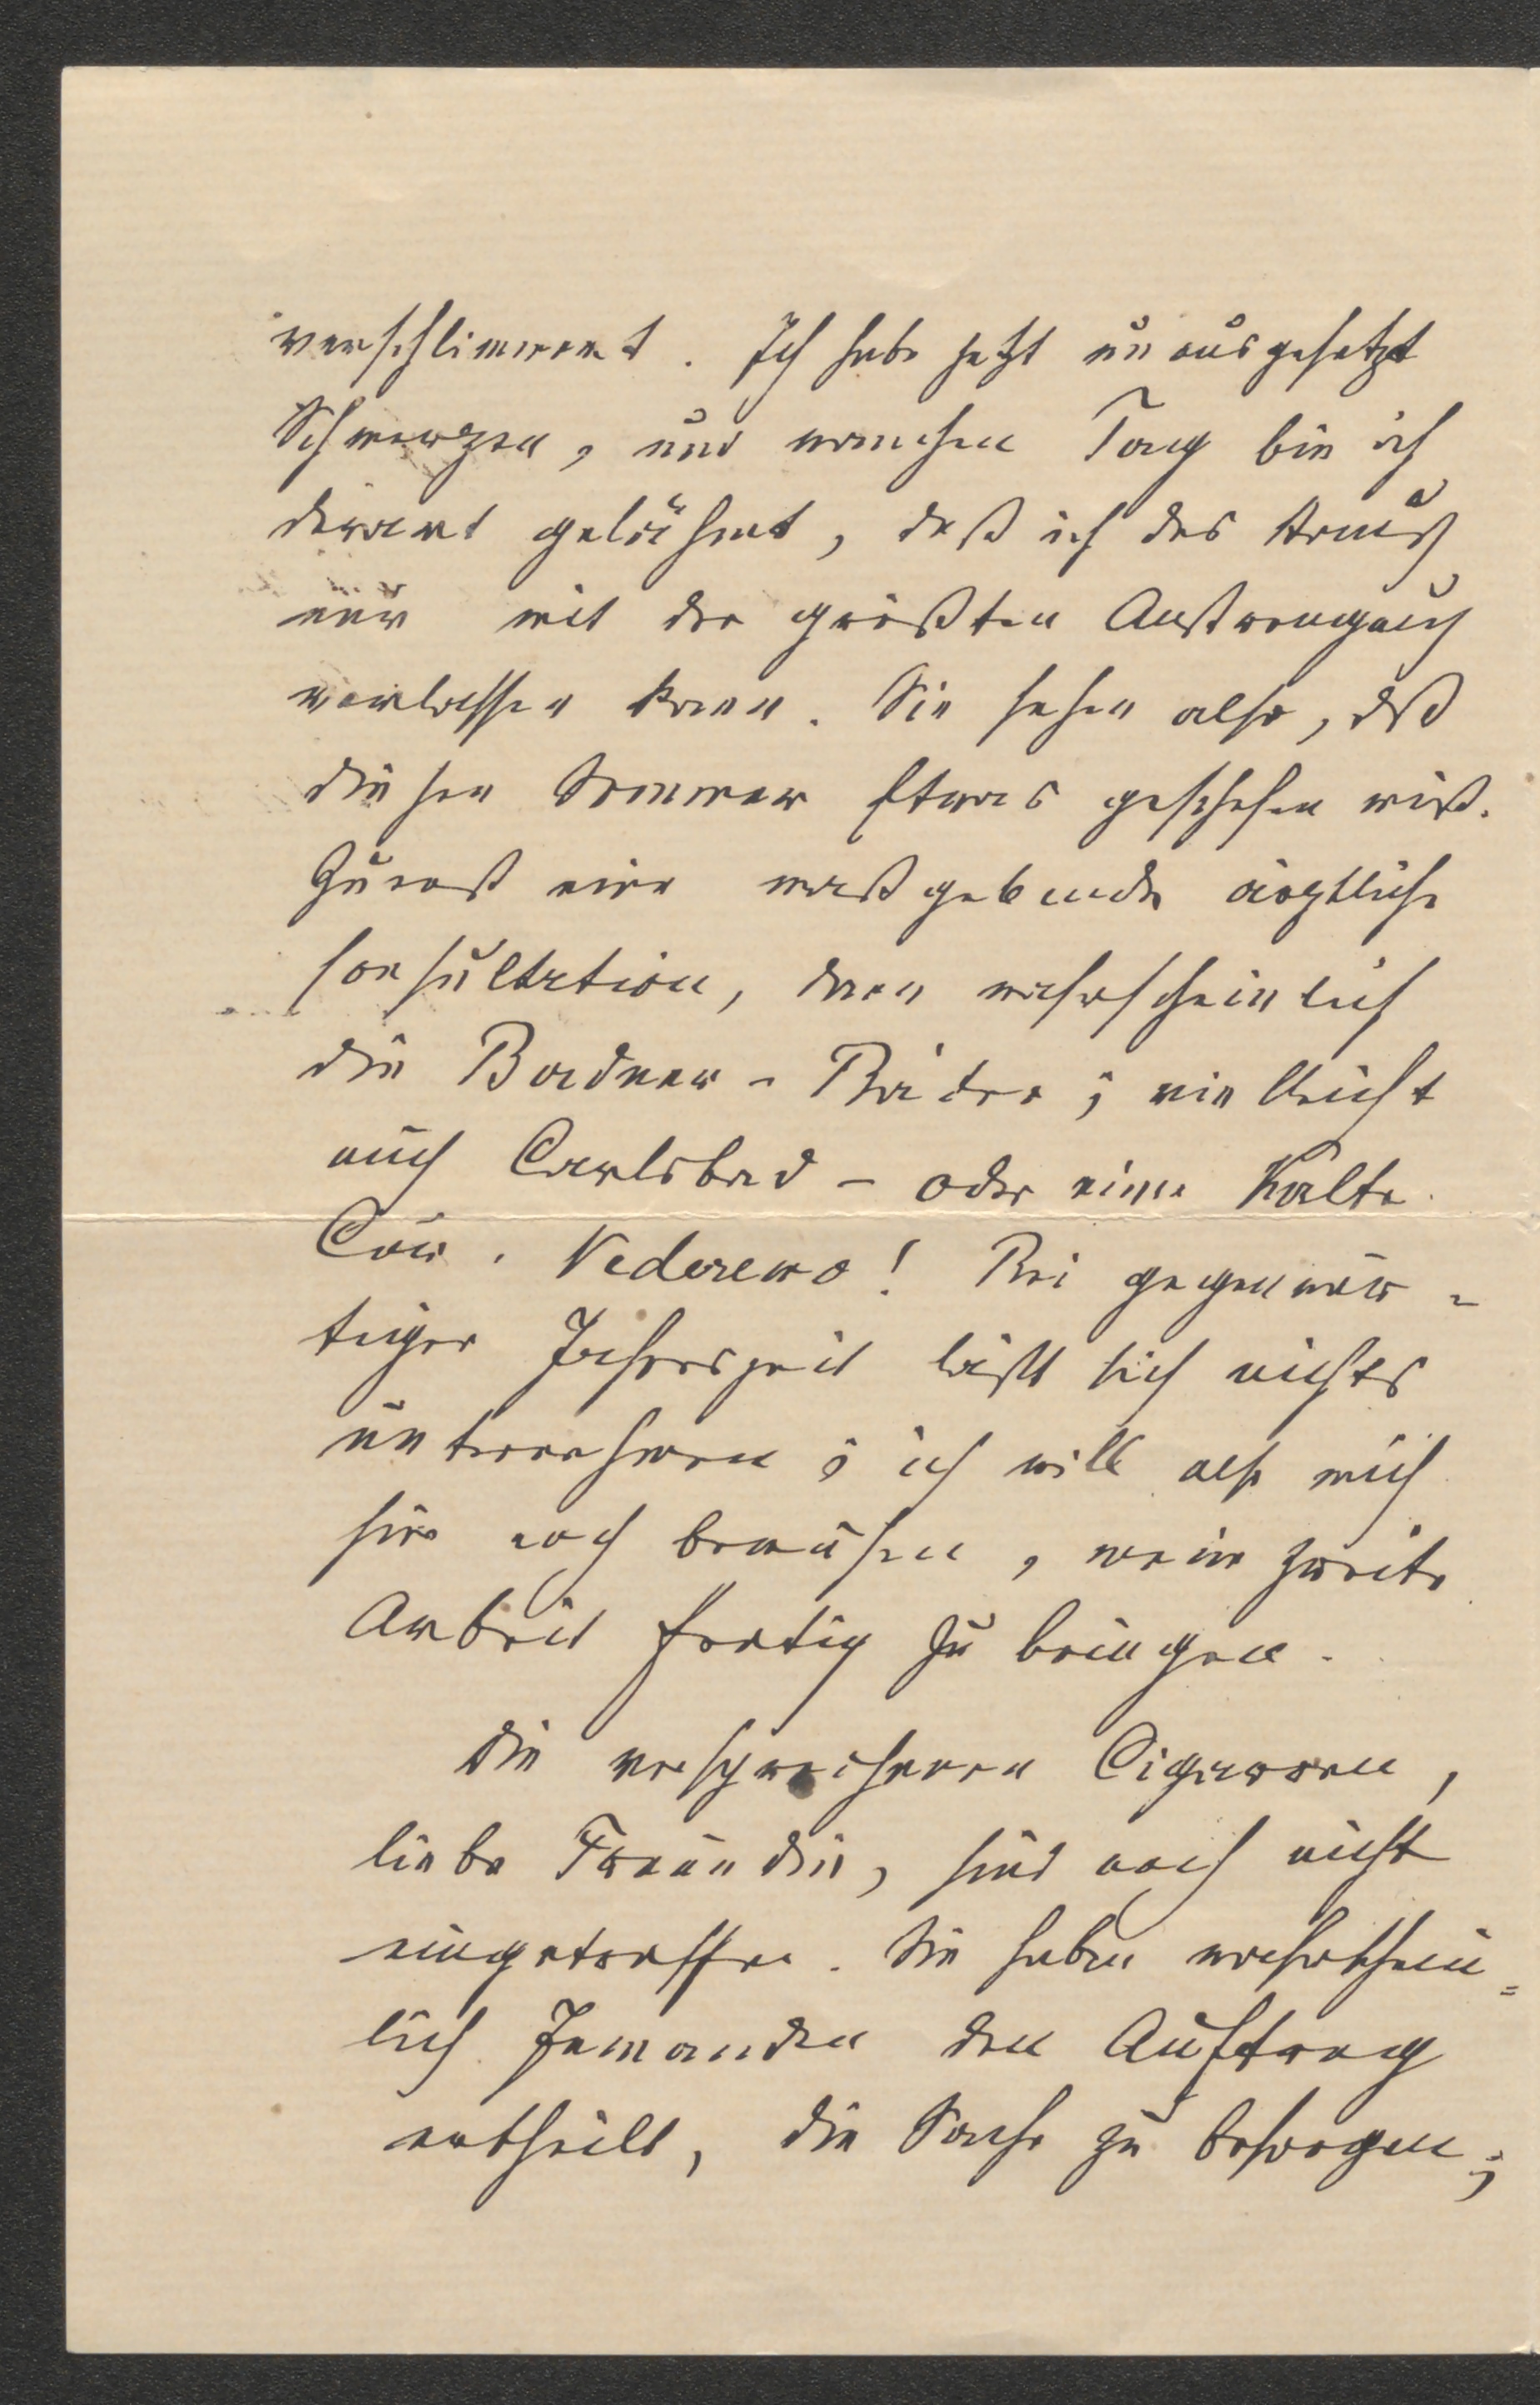 verschlimmert. Ich habe jetzt unausgesetzt
Schmerzen, und manchen Tag bin ich
derart gelähmt, daß ich das Haus
nur mit der größten Anstrengung
verlassen kann. Sie sehen also, daß
diesen Sommer Etwas geschehen muß.
Zuerst eine maßgebende ärztliche
Consultation, dann wahrscheinlich
die Badner-Bäder; vielleicht
auch Carlsbad – oder eine Kalte
Cur. Vederemo! Bei gegenwär-
tiger Jahreszeit läßt sich nichts
unternehmen; ich will also mich
hier noch bemühen, meine zweite
Arbeit fertig zu bringen.
Die versprochenen Cigarren,
liebe Freundin, sind noch nicht
eingetroffen. Sie haben wahrschein=
lich Jemanden den Auftrag
ertheilt, die Sache zu besorgen;